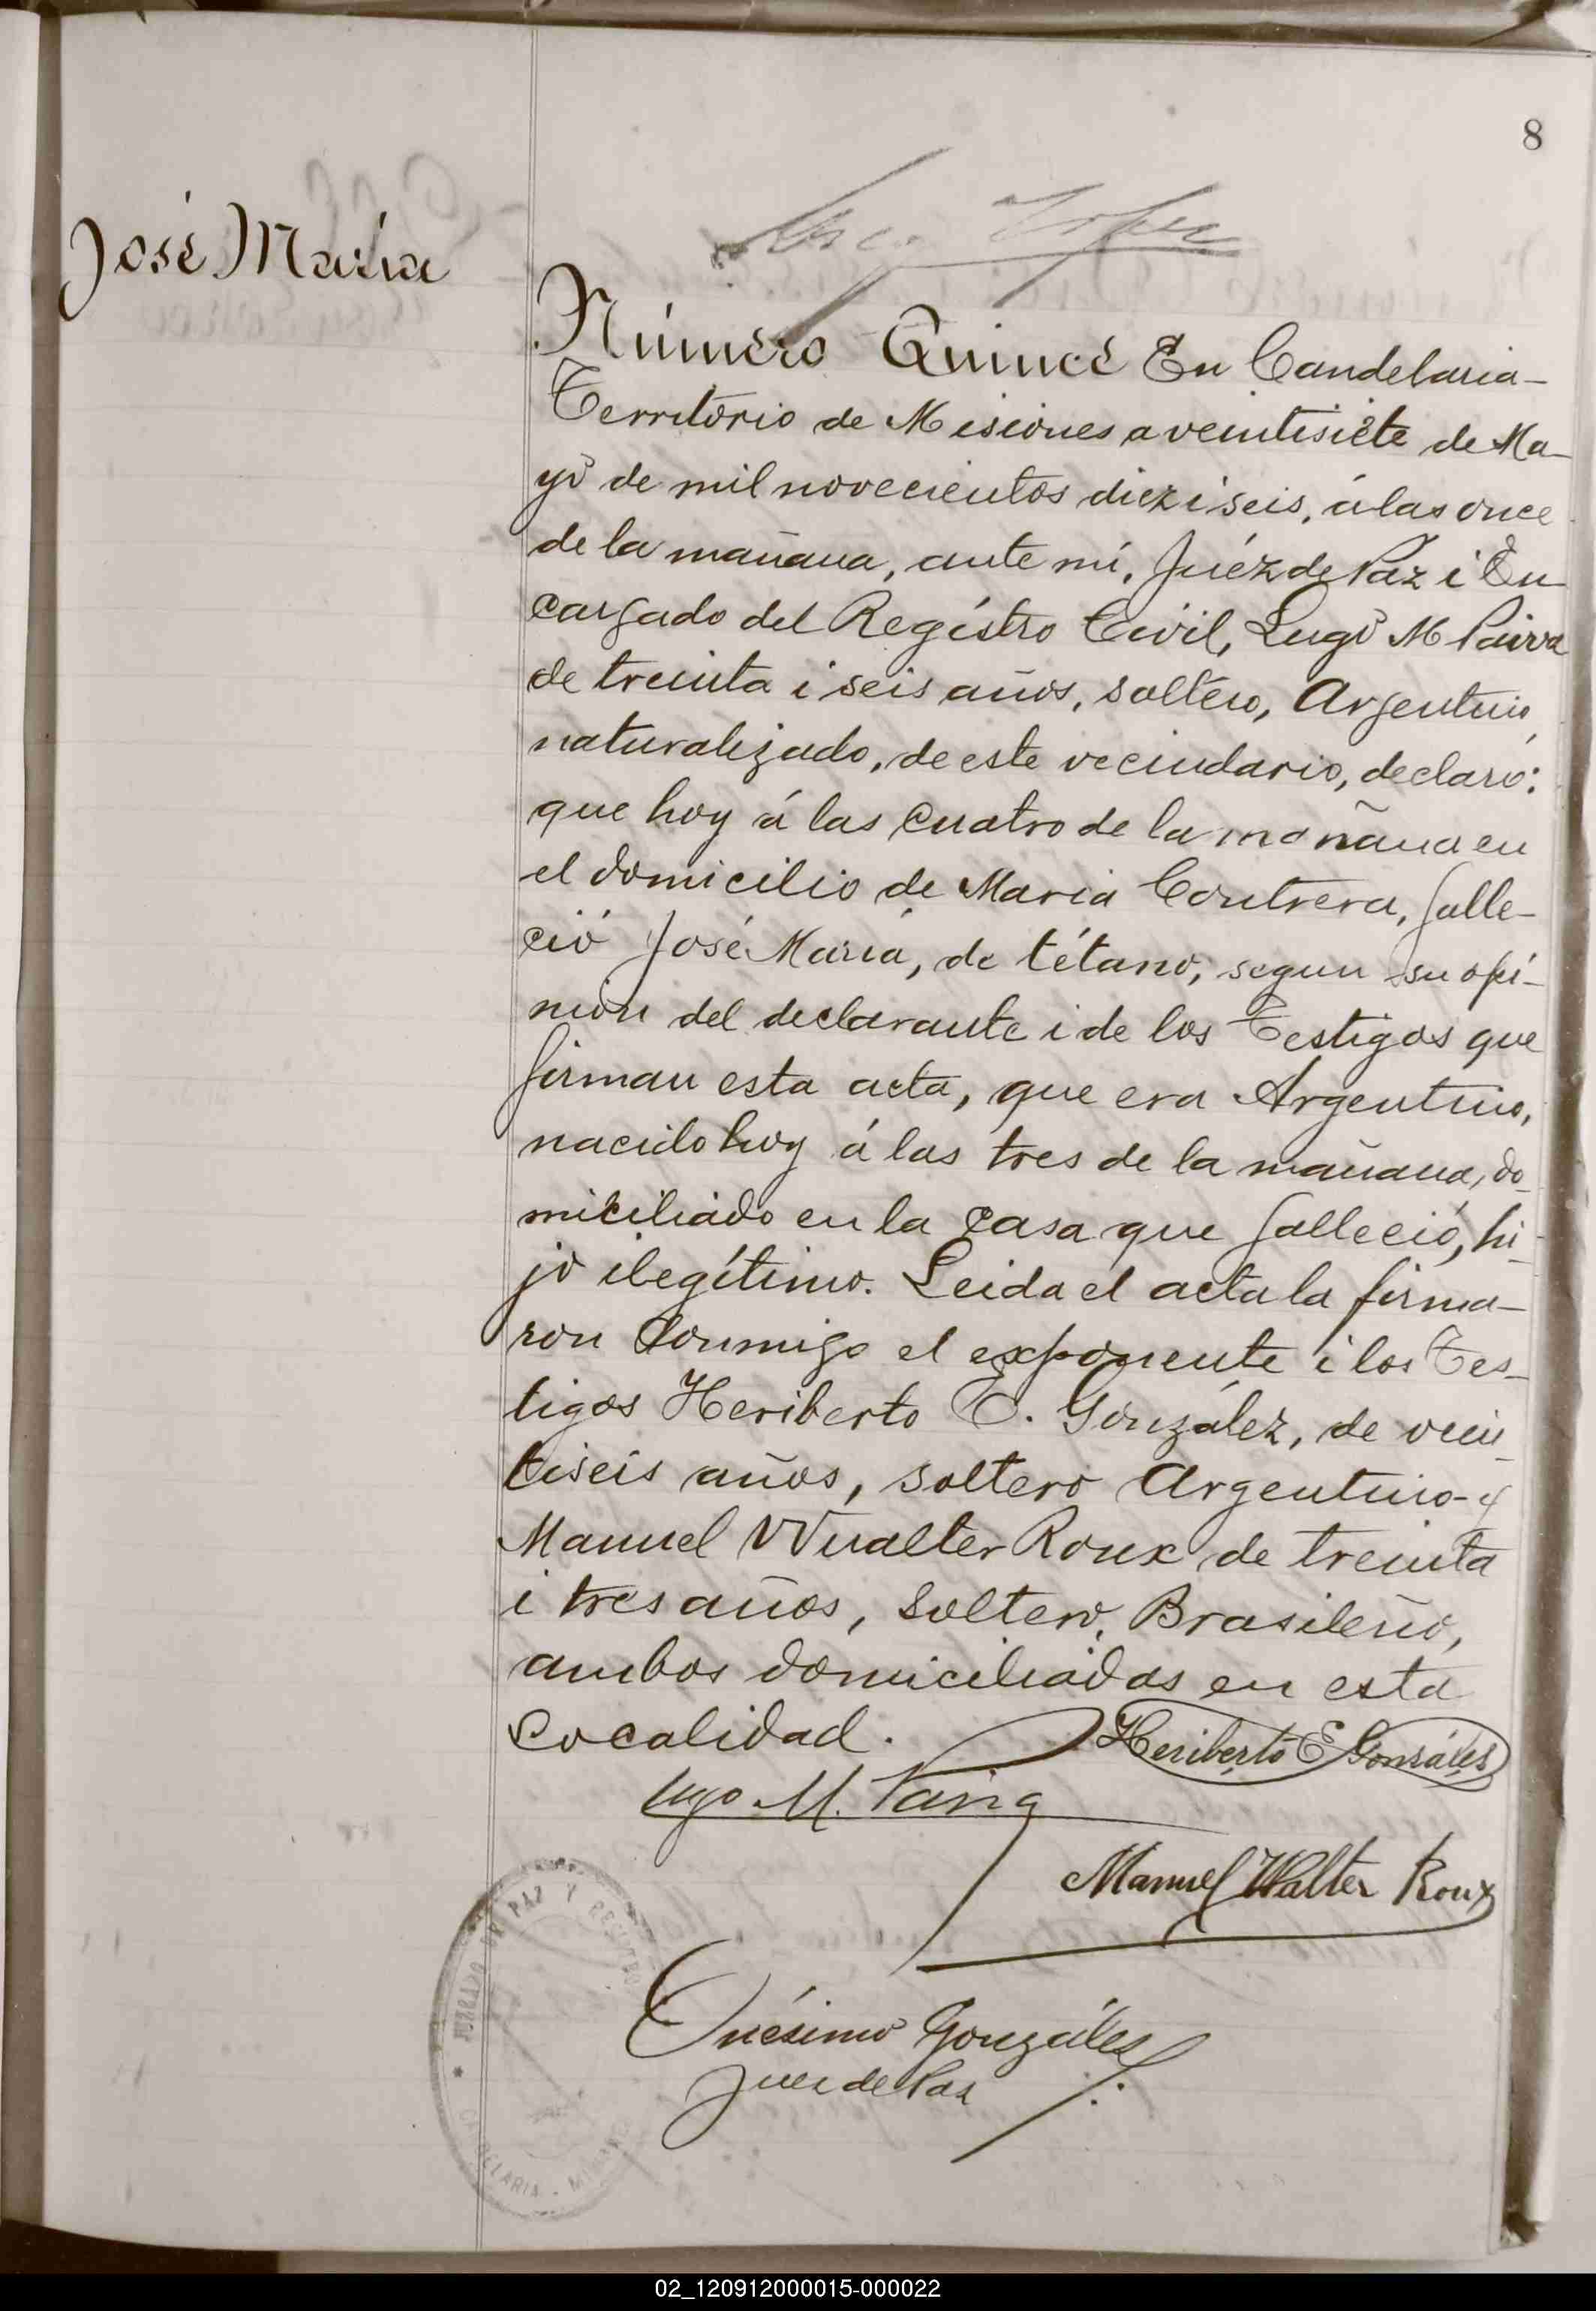 8
José María
Número Quince En Candelaria-
Territorio de Misiones a veintisiete de Ma-
yo de mil novecientos diez i seis, á las once
de la mañana, ante mí, Juéz de Paz i En
cargado del Regístro Civil, Lugo M Paiva
de treinta i seis años, soltero, Argentino
naturalizado, de este vecindario, declaró:
que hoy á las cuatro de la mañana en
el domicilio de Maria Contrera, falle-
ció José María, de tétano, segun su opi-
nión del declarante i de los Testigos que
firman esta acta, que era Argentino,
nacido hoy á las tres de la mañana, do-
miciliado en la casa que falleció, hi-
jo ilegítimo. Leida el acta la firma-
ron conmigo el exponente i los Tes-
tigos Heriberto E. González, de vein
tiseis años, soltero Argentino y
Manuel Wualter Roux de treinta
i tres años, soltero, Brasileño,
ambos domiciliados en esta
Localidad.
Heriberto E Gonzáles
Lugo M. Paiva
Manuel Walter Roux
JUZGADO DE PAZ Y REGISTRO
CANDELARIA - MISIONES
Onésimo Gonzáles
Juez de Paz
02_120912000015-000022